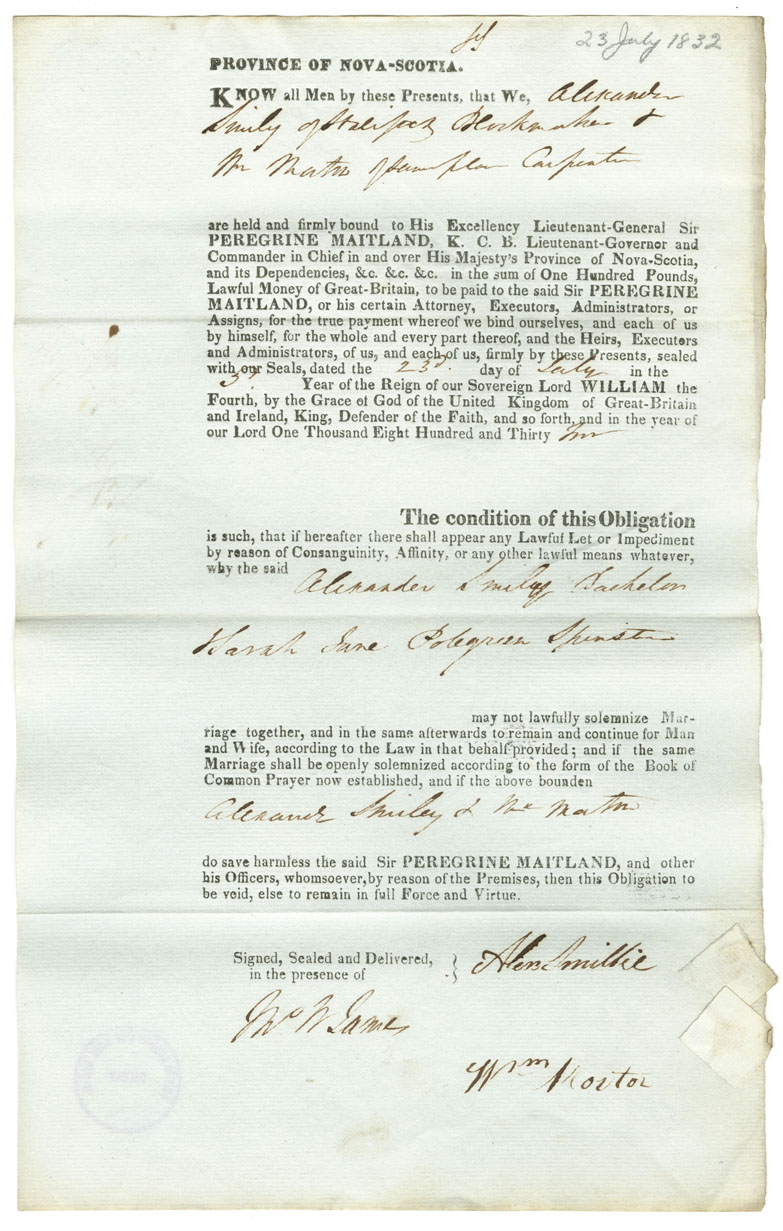 23 July 1832
PROVINCE OF NOVA-SCOTIA.
KNOW all Men by these Presents, that We, Alexander
Smily of Halifax Blockmaker &
Wm of same place Carpenter
are held and firmly bound to His Excellency Lieutenant-General Sir
PEREGRINE MAITLAND, K. C. B. Lieutenant-Governor and
Commander in Chief in and over His Majesty's Province of Nova-Scotia,
and its Dependencies, &c. &c. &c. in the sum of One Hundred Pounds,
Lawful Money of Great-Britain, to be paid to the said Sir PEREGRINE
MAITLAND, or his certain Attorney, Executors, Administrators, or
Assigns, for the true payment whereof we bind ourselves, and each of us
by himself, for the whole and every part thereof, and the Heirs, Executors
and Administrators, of us, and each of us, firmly by these Presents, sealed
with our Seals, dated the 23d. day of July in the
3d. Year of the Reign of our Sovereign Lord WILLIAM the
Fourth, by the Grace of God of the United Kingdom of Great-Britain
and Ireland, King, Defender of the Faith, and so forth, and in the year of
our Lord One Thousand Eight Hundred and Thirty two
The condition of this Obligation
is such, that if hereafter there shall appear any Lawful Let or Impediment
by reason of Consanguinity, Affinity, or any other lawful means whatever,
why the said
Alexander Smiley Bachelor
& Sarah Jane Polegreen Spinster
may not lawfully solemnize Mar-
riage together, and in the same afterwards to remain and continue for Man
and Wife, according to the Law in that behalf provided; and if the same
Marriage shall be openly solemnized according to the form of the Book of
Common Prayer now established, and if the above bounden
Alexandr Smiley & Wm
do save harmless the said Sir PEREGRINE MAITLAND, and other
his Officers, whomsoever, by reason of the Premises, then this Obligation to
be void, else to remain in full Force and Virtue.
Signed, Sealed and Delivered,
in the presence of
Alexr Smillie
W James
Wm